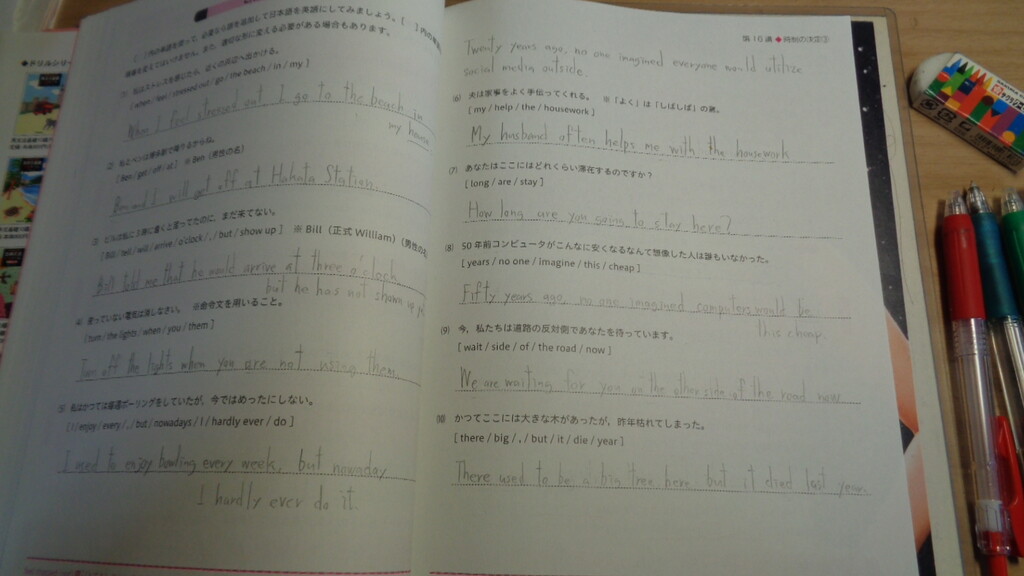 ◆ドリルシリー
[ ]内の単語を使って、必要なら語を追加して日本語を英語にしてみましょう。[ ]内の単
語順を変えてはいけません。また、適切な形に変える必要がある場合もあります。
(1) 私はストレスを感じたら、近くの浜辺へ出かける。
[ when / feel / stressed out / go / the beach / in / my ]
When I feel stressed out I go to the beach in
my house
(2) 私とベンは博多駅で降りるからね。
[ Ben / get / off / at ] ※ Ben (男性の名)
Ben and I will get off at Hakata Station.
(3) ビルは私に3時に着くと言ってたのに、まだ来てない。
[ Bill / tell / will / arrive / o'clock / , / but / show up ] ※ Bill (正式 William) (男性の名
Bill told me that he would arrive at three o'clock
but he has not shown up
(4) 使っていない電気は消しなさい。 ※命令文を用いること。
[ turn / the lights / when / you / them ]
Turn off the lights when you are not using them.
(5) 私はかつては毎週ボーリングをしていたが、今ではめったにしない。
[ I / enjoy / every / , / but / nowadays / I / hardly ever / do ]
I used to enjoy bowling every week, but nowaday
I hardly ever do it.
第16講◆時制の決定②
Twenty years ago, no one imagined everyone would utilize
social media outside.
(6) 夫は家事をよく手伝ってくれる。 ※「よく」は「しばしば」の意。
[ my / help / the / housework ]
My husband often helps me with the housework
(7) あなたはここにはどれくらい滞在するのですか?
[ long / are / stay ]
How long are you going to stay here?
(8) 50年前コンピュータがこんなに安くなるなんて想像した人は誰もいなかった。
[ years / no one / imagine / this / cheap ]
Fifty years ago, no one imagined computers would be
this cheap.
(9) 今，私たちは道路の反対側であなたを待っています。
[ wait / side / of / the road / now ]
We are waiting for you on the other side of the road now
(10) かつてここには大きな木があったが，昨年枯れてしまった。
[ there / big / , / but / it / die / year ]
There used to be a big tree here but it died last year.